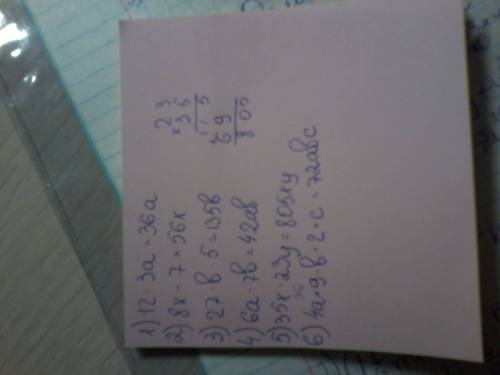 1) 12 · 3a = 36a
2) 8x · 7 = 56x
3) 27 · в 5 = 135в
4) 6a · 7в = 42ав
5) 35x · 23y = 805xy
36
6) 4a · 9 · в · 2 · c = 72авс
23
× 35
115
+ 69
805